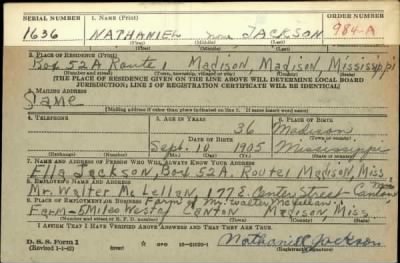 SERIAL NUMBER 1. NAME (Print) ORDER NUMBER
1636 NATHANIEL none JACKSON 984-A
(First) (Middle) (Last)
2. PLACE OF RESIDENCE (Print)
Box 52A Route 1 Madison, Madison, Mississippi
(Number and street) (Town, township, village or city) (County) (State)
[THE PLACE OF RESIDENCE GIVEN ON THE LINE ABOVE WILL DETERMINE LOCAL BOARD
JURISDICTION; LINE 2 OF REGISTRATION CERTIFICATE WILL BE IDENTICAL]
3. MAILING ADDRESS
Same
[Mailing address if other than place indicated on line 2. If same insert word same]
4. TELEPHONE 5. AGE IN YEARS 6. PLACE OF BIRTH
36 Madison
DATE OF BIRTH (Town or county)
Sept. 10 1905 Mississippi
(Exchange) (Number) (Mo.) (Day) (Yr.) (State or country)
7. NAME AND ADDRESS OF PERSON WHO WILL ALWAYS KNOW YOUR ADDRESS
Ella Jackson, Box 52A, Route 1 Madison, Miss
8. EMPLOYER'S NAME AND ADDRESS
Mr. Walter McLellan, 177 E. Center Street - Canton Miss
9. PLACE OF EMPLOYMENT OR BUSINESS Farm of Mr. Walter McLellan
Farm - 5 Miles West of Canton Madison, Miss.
(Number and street or R. F. D. number) (Town) (County) (State)
I AFFIRM THAT I HAVE VERIFIED ABOVE ANSWERS AND THAT THEY ARE TRUE.
D. S. S. Form 1
(Revised 1-1-42) GPO 16-21630-1 Nathaniel Jackson
(Registrant's signature)